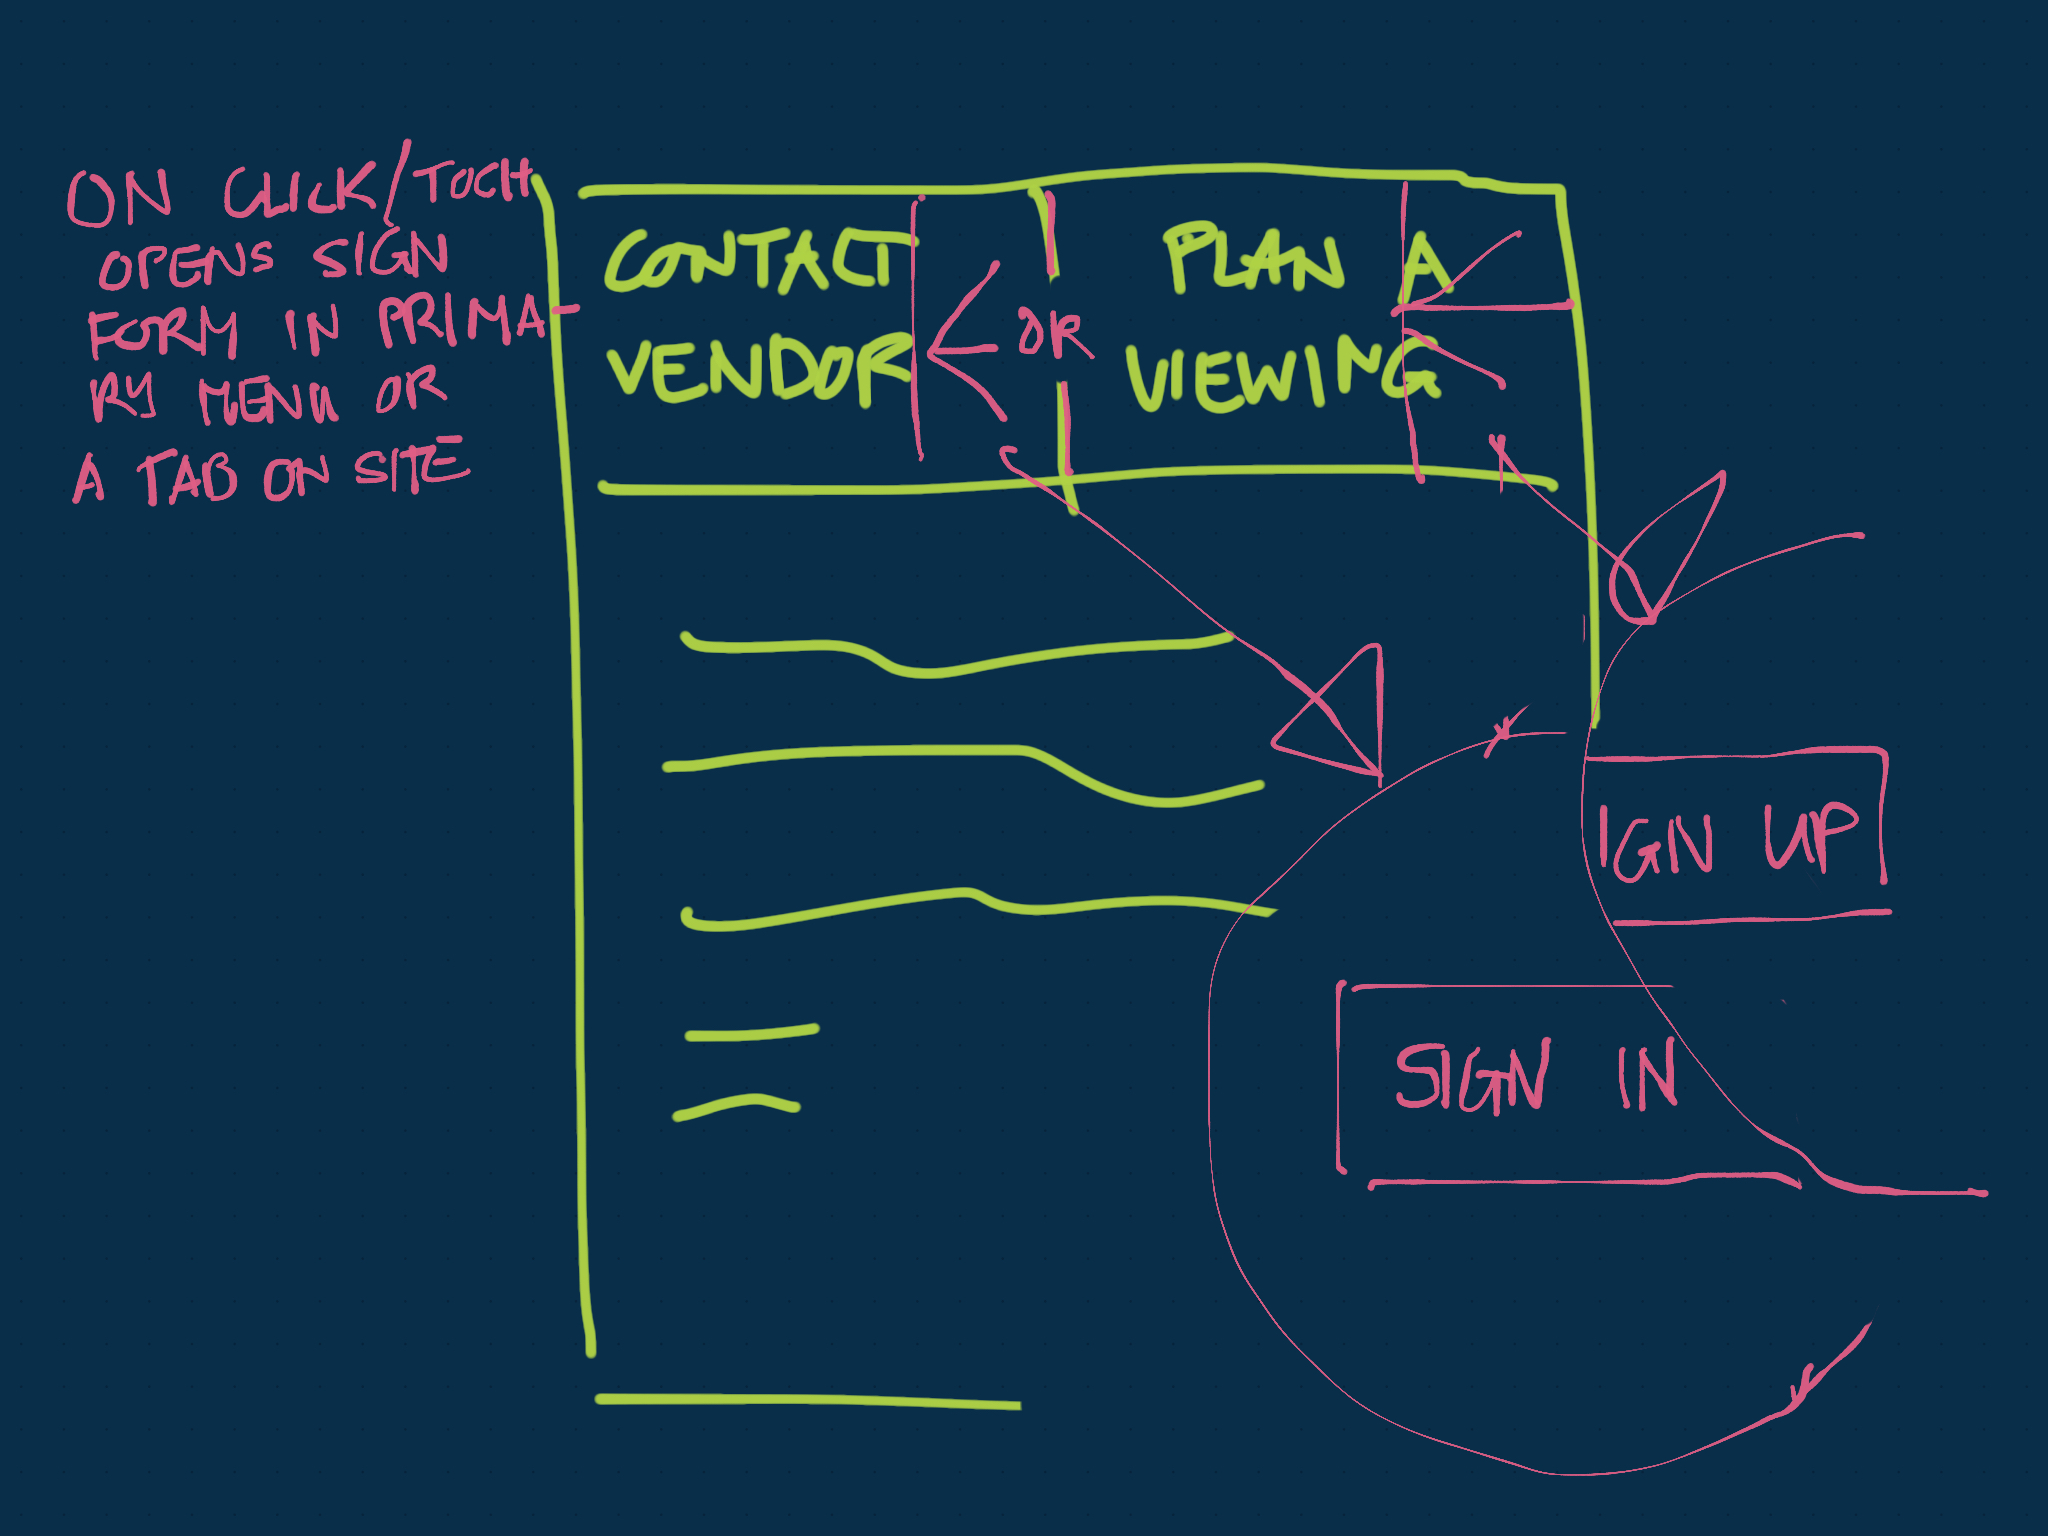 ON CLICK/TOCH
OPENS SIGN
FORM IN PRIMA-
RY MENU OR
A TAB ON SITE
CONTACT
VENDOR
OR
PLAN A
VIEWING
IGN UP
SIGN IN